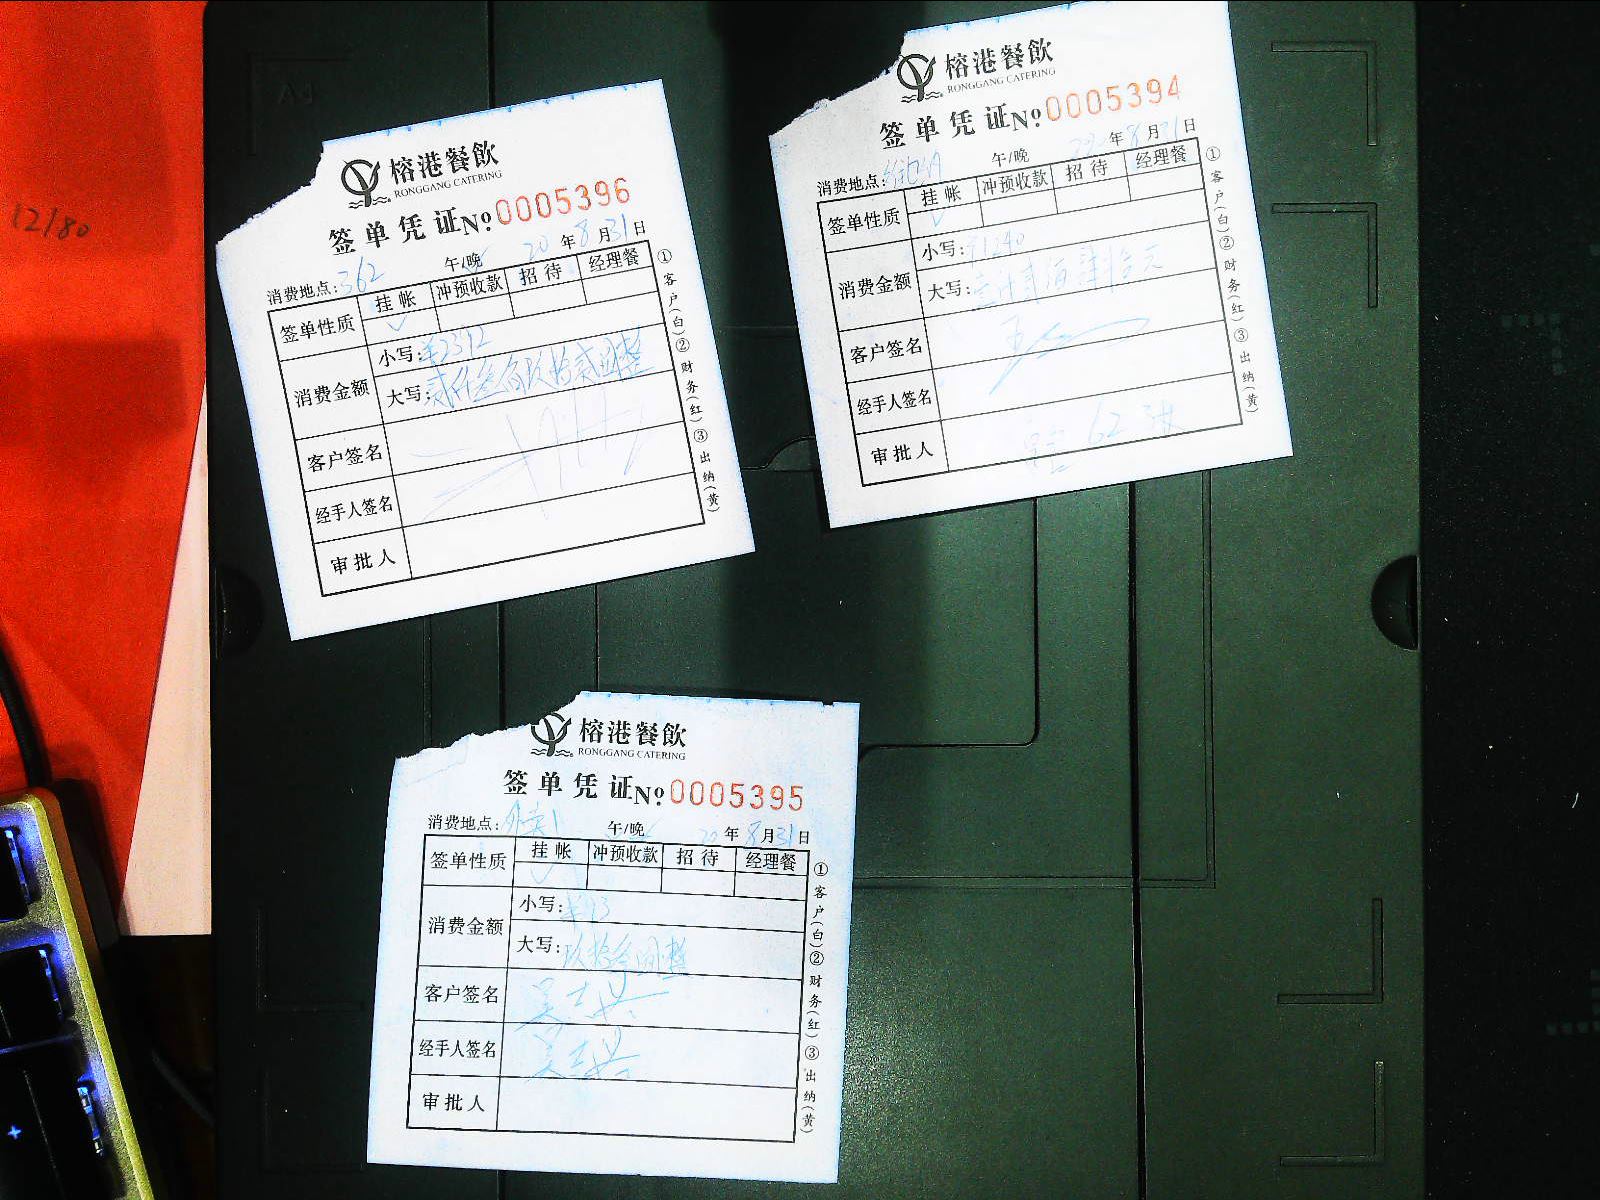 12180
榕港餐飲
RONGGANG CATERING
签单凭证№0005396
消费地点:362 午/晚 20年8月31日
签单性质 挂帐 冲预收款 招待 经理餐
消费金额 小写:¥2392
大写:贰仟叁佰玖拾贰圆整
客户签名
经手人签名
审批人
①客户(白)②财务(红)③出纳(黄)
榕港餐飲
RONGGANG CATERING
签单凭证№0005394
消费地点: 午/晚 年8月31日
签单性质 挂帐 冲预收款 招待 经理餐
消费金额 小写:
大写:
客户签名
经手人签名
审批人
①客户(白)②财务(红)③出纳(黄)
榕港餐飲
RONGGANG CATERING
签单凭证№0005395
消费地点: 午/晚 20年8月31日
签单性质 挂帐 冲预收款 招待 经理餐
消费金额 小写:¥93
大写:玖拾叁圆整
客户签名
经手人签名
审批人
①客户(白)②财务(红)③出纳(黄)